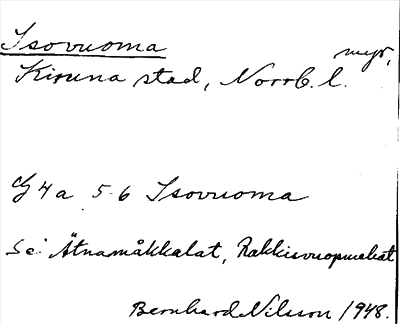 Isovuoma myr,
Kiruna stad, Norrb. l.
G 4 a 5-6 Isovuoma
Se: Ätnamåkkalat,
Bernhard Nilsson 1948.